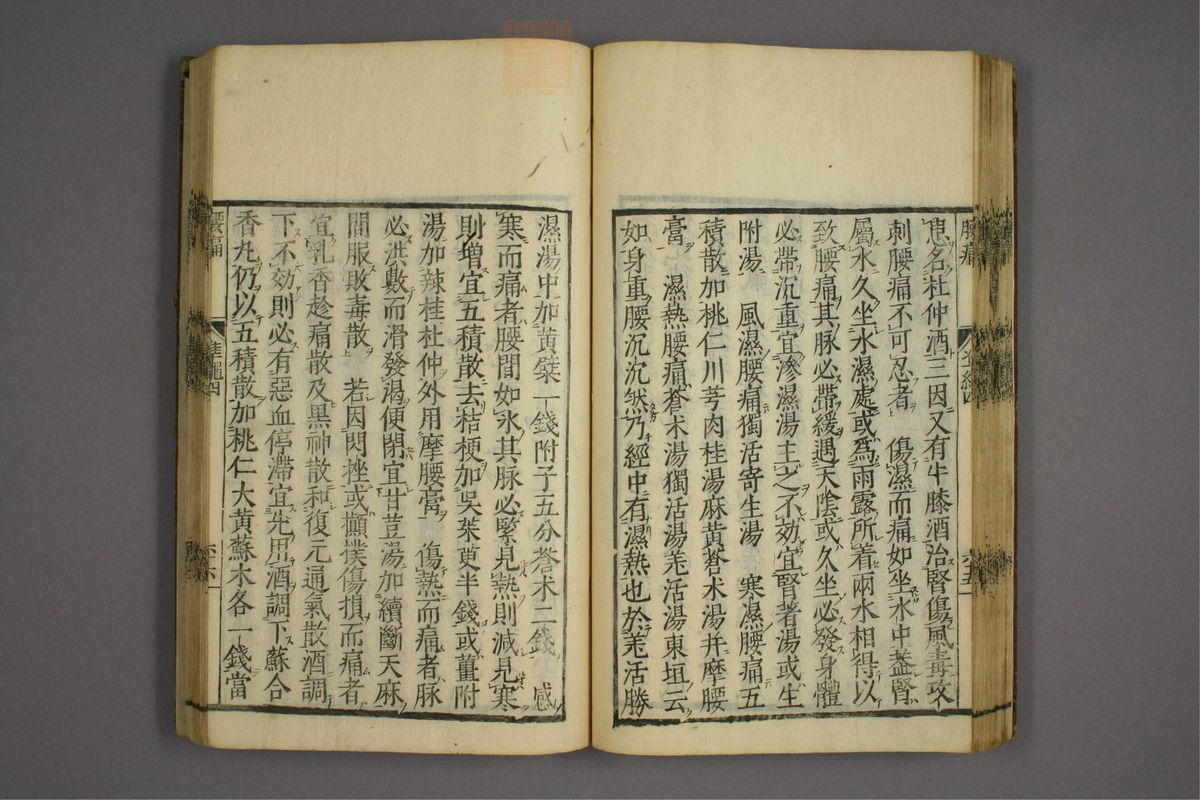 患名杜仲酒三因又有牛膝酒治腎傷風毒攻
刺腰痛不可忍者　傷濕而痛如坐水中盖腎
屬水久坐水濕處或爲雨露所着兩水相得以
致腰痛其脉必帶緩遇天陰或久坐必發身體
必帶沉重宜滲濕湯主之不效宜腎著湯或生
附湯　風濕腰痛獨活寄生湯　寒濕腰痛五
積散加桃仁川芎肉桂湯麻黄蒼朮湯并摩腰
膏　濕熱腰痛蒼朮湯獨活湯羌活湯東垣云
如身重腰沉沉然乃經中有濕熱也於羌活勝
濕湯中加黄檗一錢附子五分蒼朮二錢　感
寒而痛者腰間如氷其脉必緊見熱則減見寒
則增宜五積散去桔梗加吳茱萸半錢或薑附
湯加辣桂杜仲外用摩腰膏　傷熱而痛者脉
必洪數而滑發渴便閉宜甘荳湯加續斷天麻
間服敗毒散　若因閃挫或攧撲傷損而痛者
宜乳香趁痛散及黑神散和復元通氣散酒調
下不效則必有惡血停滯宜先用酒調下蘇合
香丸仍以五積散加桃仁大黄蘇木各一錢當
腰痛